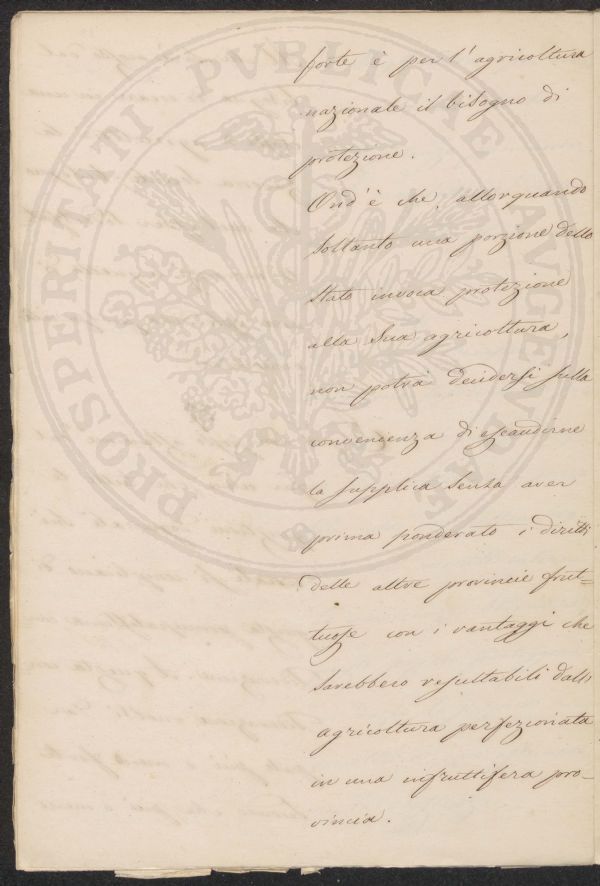 forte è per l'agricoltura
nazionale il bisogno di
protezione.
Ond'è che, allorquando
soltanto una porzione dello
stato invoca protezione
alla sua agricoltura,
non potrà decidersi sulla
convenienza di esaudirne
la supplica senza aver
prima ponderato i diritti
delle altre provincie frut=
tuose con i vantaggi che
sarebbero resultabili dall'
agricoltura perfezionata
in una infruttifera pro-
vincia.
PROSPERITATI PUBLICAE AUGENDAE